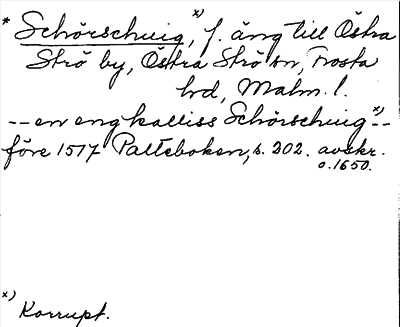 * Schörschuig,x) f. äng till Östra
Strö by, Östra Strö sn, Frosta
hd, Malm. l.
-- en eng kalliss Schörschuig x)--
före 1517 Palteboken, s. 202. avskr.
o. 1650.
x) Korrupt.